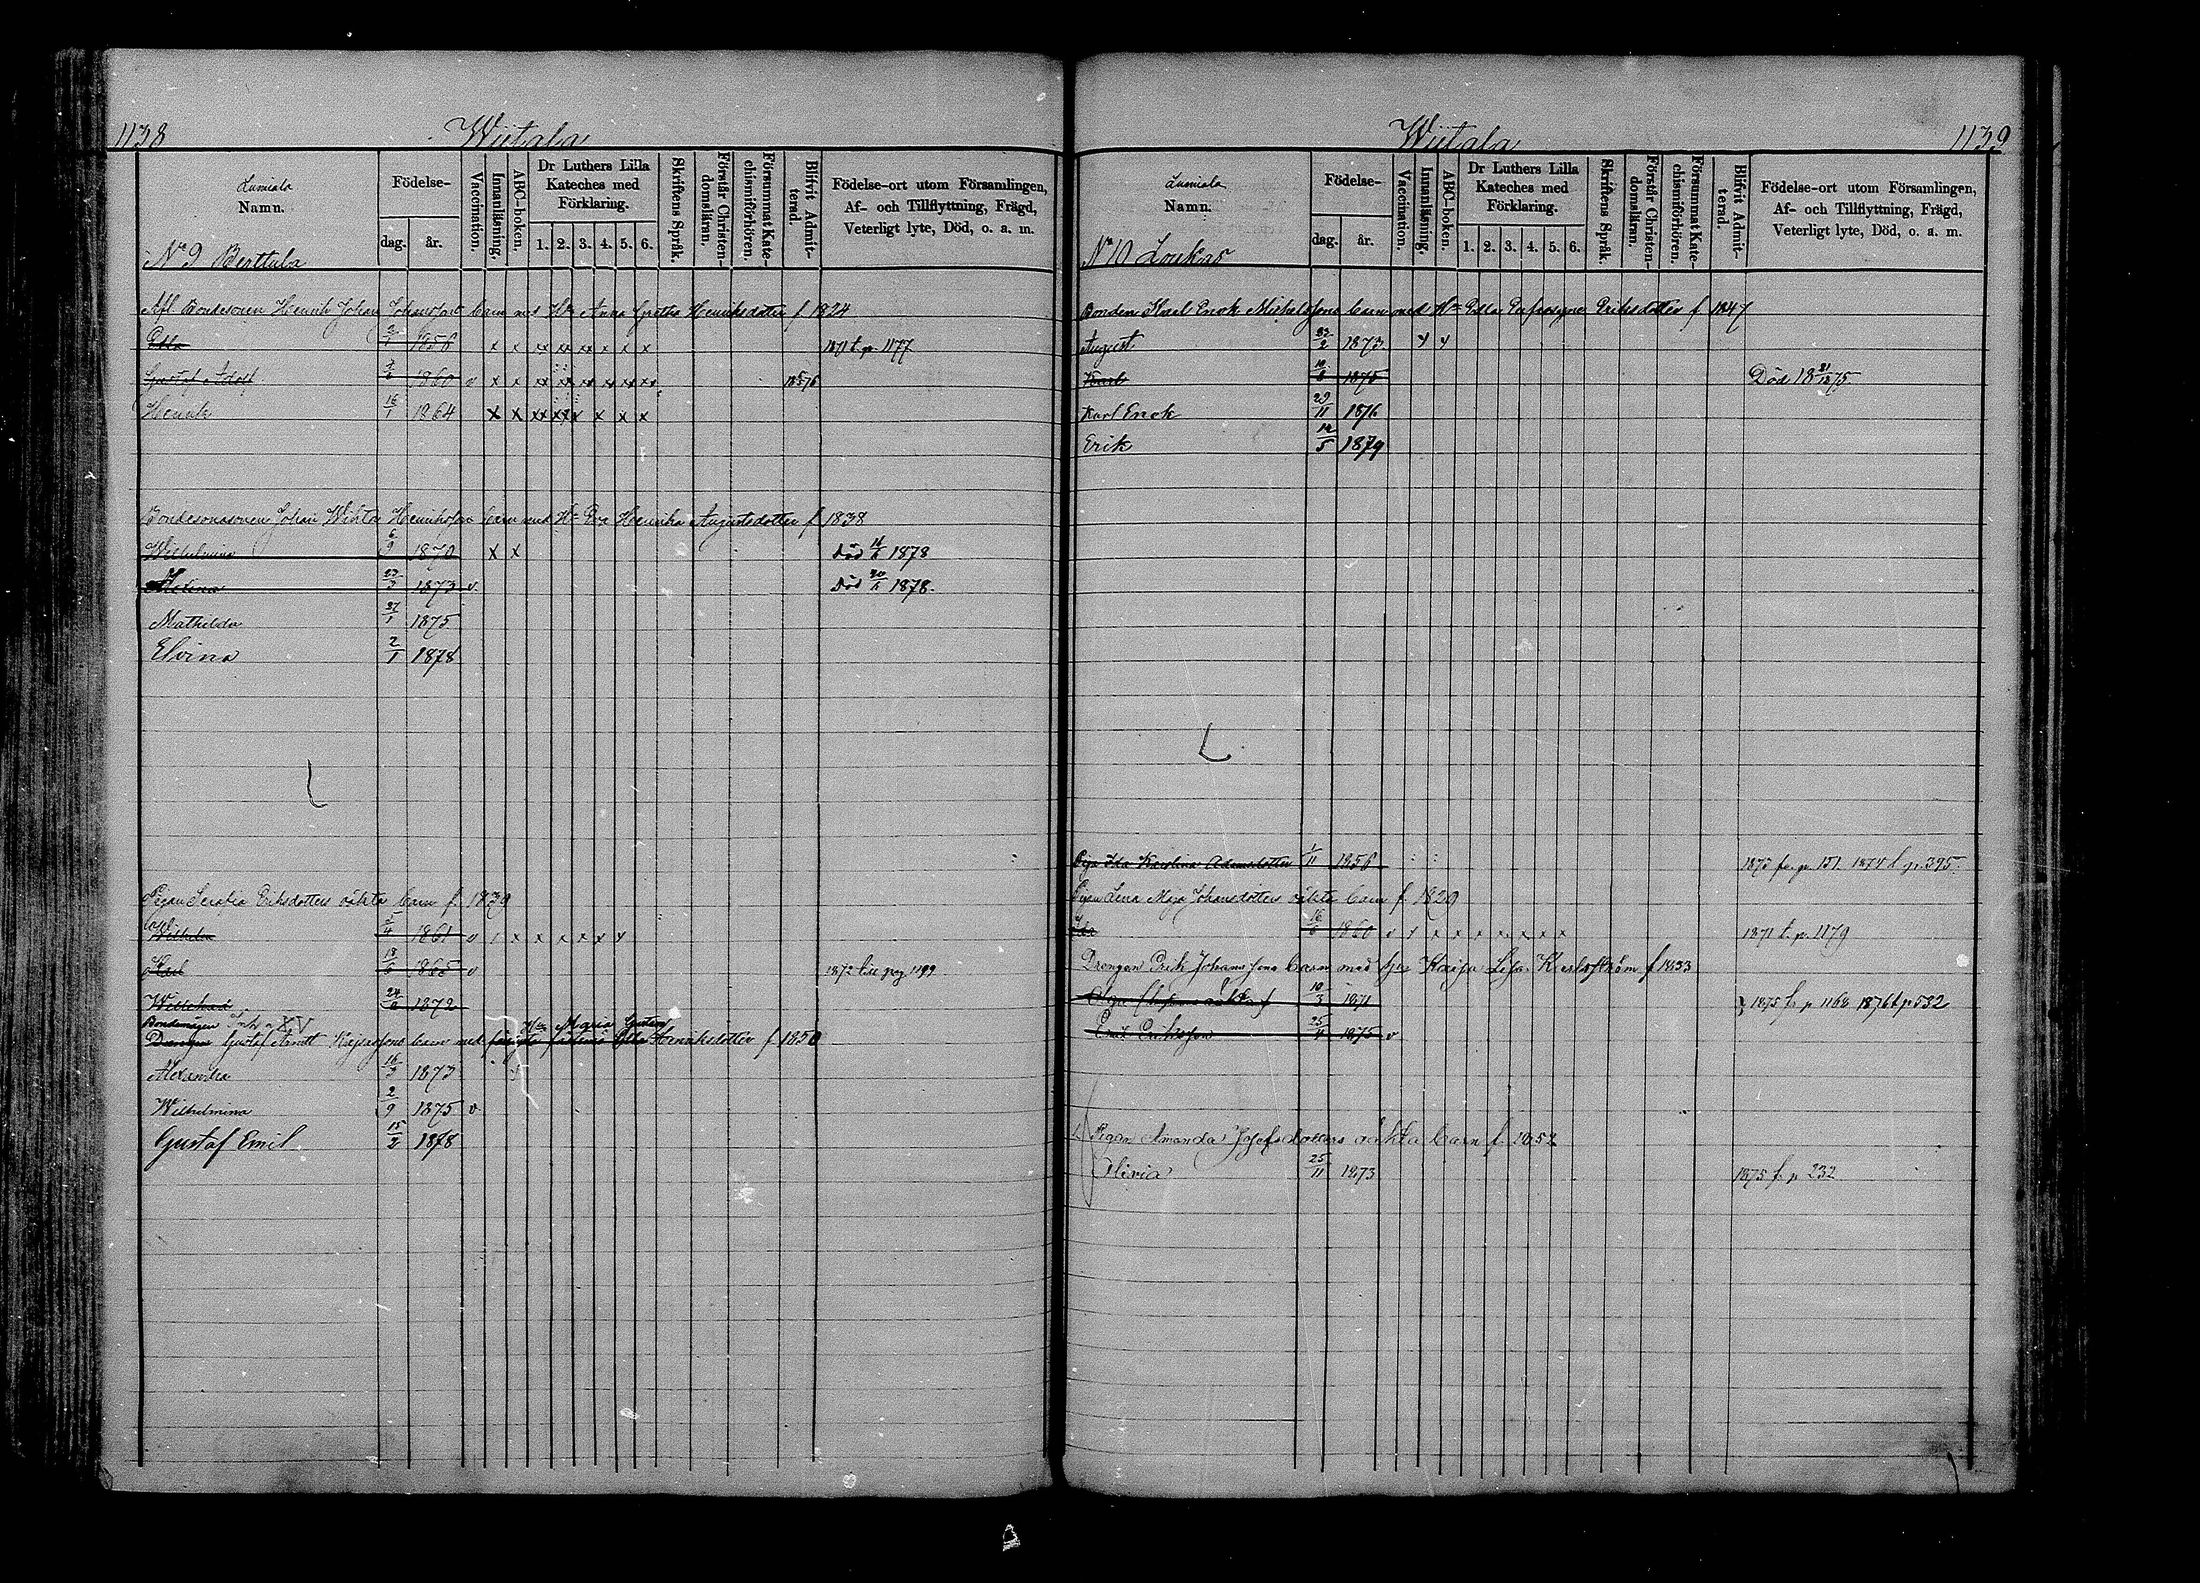 1138 Wiitala
Lumiala
Namn.
Födelse-
dag. år.
Vaccination.
Innanläsning.
ABC-boken.
Dr Luthers Lilla Kateches med Förklaring.
1. 2. 3. 4. 5. 6.
Skriftens Språk.
Förstår Christendomsläran.
Försummat Katechismiförhören.
Blifvit Admitterad.
Födelse-ort utom Församlingen,
Af- och Tillflyttning, Frägd,
Veterligt lyte, Död, o. a. m.
No 9 Berttula
Afl. Bondesonen Henrik Johan Johansson barn med Hu Anna Greta Henriksdotter f 1824
Edla 1856 x x xx xx xx x x x 1871 t. p. 1177
Gustaf Adolf 1860 v x x xx xx xx xx xx xx
Henrik 16/1 1864 x x xx xx x x x x
Bondesonasonen Johan Wihtor Henriksson barn med Hu Eva Henrika Augustsdotter f 1838
Wilhelmina 6/9 1870 x x Död 1878
Helena 23/3 1873 v Död 1878.
Mathilda 27/1 1875
Elvina 2/1 1878
Pigan Serafia Eriksdotters oäkta barn f. 1839
Wilhelm 1861 v / x x x x x x
Karl 1865 v 1872 pag. 1199
24/2 1872
Bondemågen
Drengen Gustaf barn med Hu Maria Henriksdotter f 1850
Alexandra 16/3 1873
Wilhelmina 2/9 1875 v
Gustaf Emil 15/2 1878
Wiitala 1139
Lumiala
Namn.
Födelse-
dag. år.
Vaccination.
Innanläsning.
ABC-boken.
Dr Luthers Lilla Kateches med Förklaring.
1. 2. 3. 4. 5. 6.
Skriftens Språk.
Förstår Christendomsläran.
Försummat Katechismiförhören.
Blifvit Admitterad.
Födelse-ort utom Församlingen,
Af- och Tillflyttning, Frägd,
Veterligt lyte, Död, o. a. m.
No 10 Loukas
Bonden Karl Enok Michelssons barn med Hu Edla Eufrosyne Eriksdotter f 1847
August 23/2 1873
Karl 1875 Död 18 21/12 75
Karl Enok 29/11 1876
Erik 12/5 1879
Piga Ida Karolina Adamsdotter 1/11 1856 1873 fr. p. 151. 1874 t. p. 395.
Pigan Lena Maja Johansdotters oäkta barn f 1820
Ida 1860 1871 t. p. 1179
Drengen Erik Johanssons barn med Hu Kaisa Lisa f 1833
Olga 10/3 1871 1875 fr. p 1168 1876 t. p 532
Emil Eriksson 25/4 1875 v
Pigan Amanda Josefsdotters oäkta barn f. 1852
Olivia 25/11 1873 1875 fr. p 232